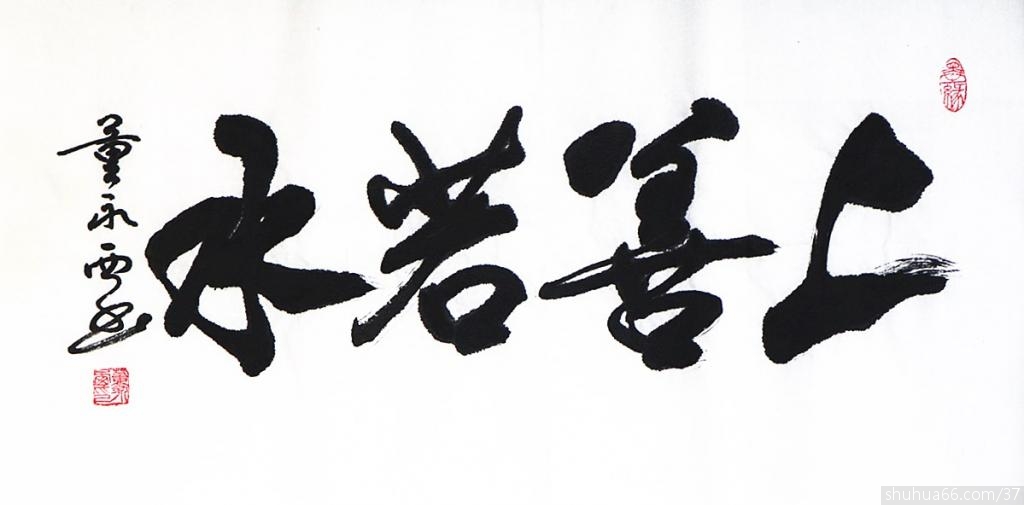 上善若水
董永西书
shuhua66.com/37